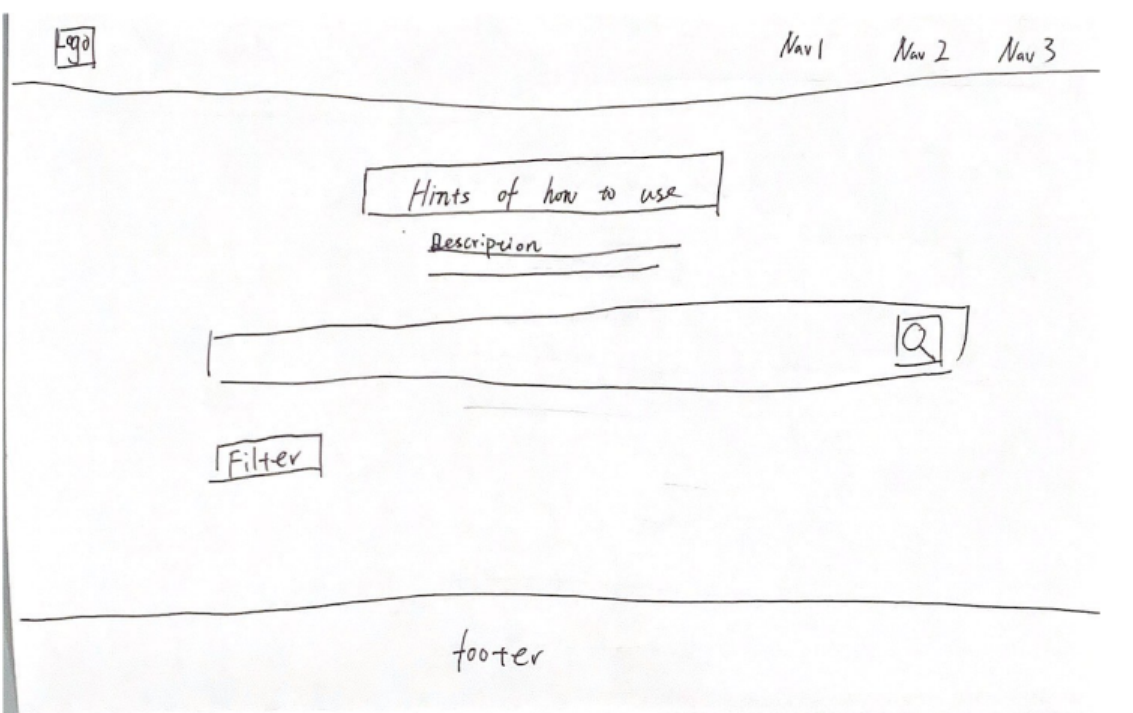 Logo Nav 1 Nav 2 Nav 3
Hints of how to use
Description
Filter
footer